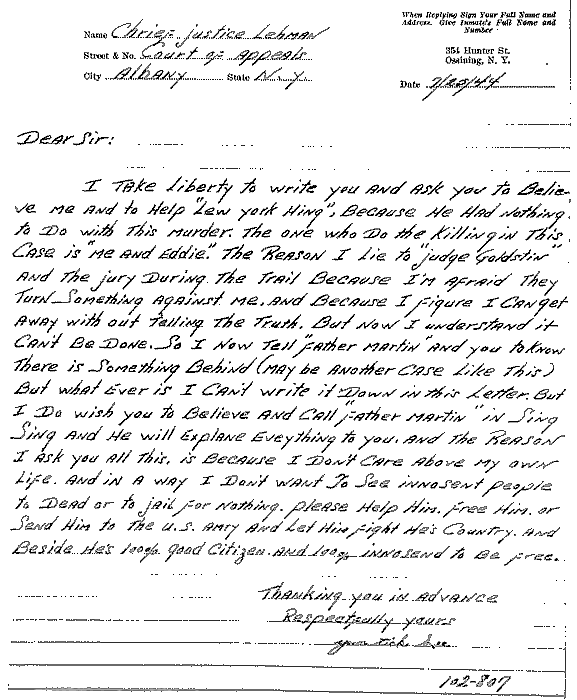 When Replying Sign Your Full Name and
Address. Give Inmate's Full Name and
Number
Name Chrief justice Lehman
Street & No. Court of Appeals
City Albany State N.Y.
354 Hunter St.
Ossining, N. Y.
Date
Dear Sir:
I Take liberty to write you and ask you to Belie-
ve me and to Help "Lew york Hing", Because He Had Nothing
to Do with This Murder. The one who Do the Killing in This
Case is "me and Eddie." The Reason I Lie to "judge Goldstin"
And the jury During The Trail Because I'm Afraid They
Turn Something Against me. And Because I Figure I Can get
Away with out Telling The Truth. But now I understand it
Can't Be Done. So I Now Tell "Father Martin" and you to know
There is Something Behind (may be Another Case Like This)
But what Ever is I Can't write it Down in this Letter. But
I Do wish you to Believe And Call "Father Martin" in Sing
Sing And He will Explane Eveything to you. And the Reason
I Ask you All This, is Because I Don't Care Above my own
Life. And in a way I Don't want To See innosent people
to Dead or to jail For Nothing. please Help Him. Free Him. or
Send Him to the U.S. Amy And Let Him Fight He's Country. And
Beside He's 100% good Citizen. And 100% innosend to Be Free.
Thanking you in Advance
Respectfully yours
102-807